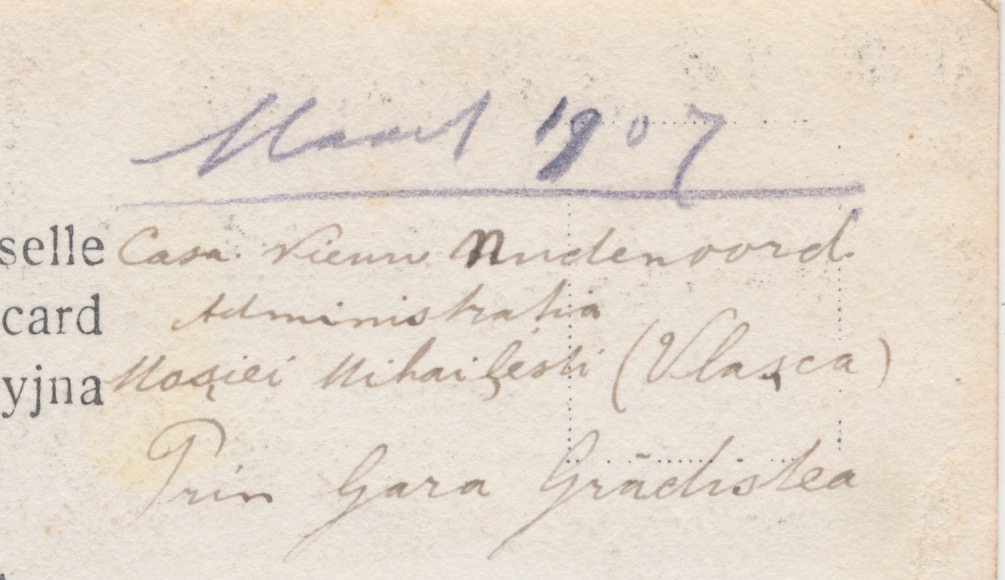 Maart 1907
selle
Casa. Nieuw Nudenoord.
card
Administratia
yjna
Moșiei Mihailești (Vlașca)
Prin Gara Grădistea